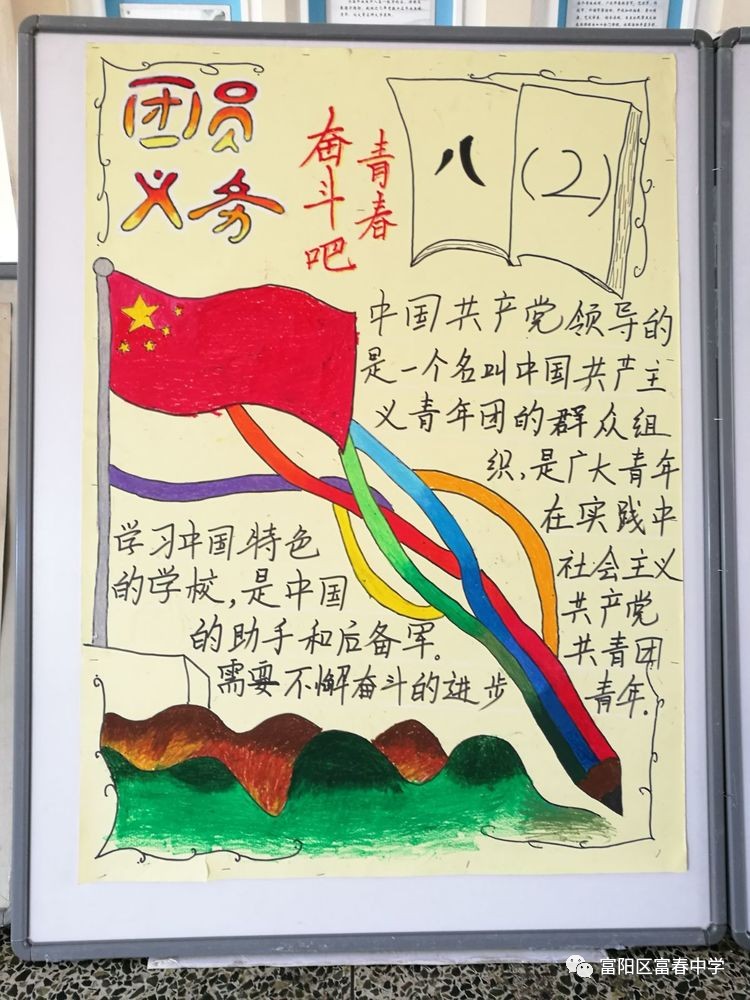 团员
义务
青春
奋斗吧
八
(2)
中国共产党领导的
是一个名叫中国共产主
义青年团的群众组
织,是广大青年
在实践中
学习中国特色
社会主义
的学校,是中国
共产党
的助手和后备军。
共青团
需要不懈奋斗的进步
青年.
富阳区富春中学